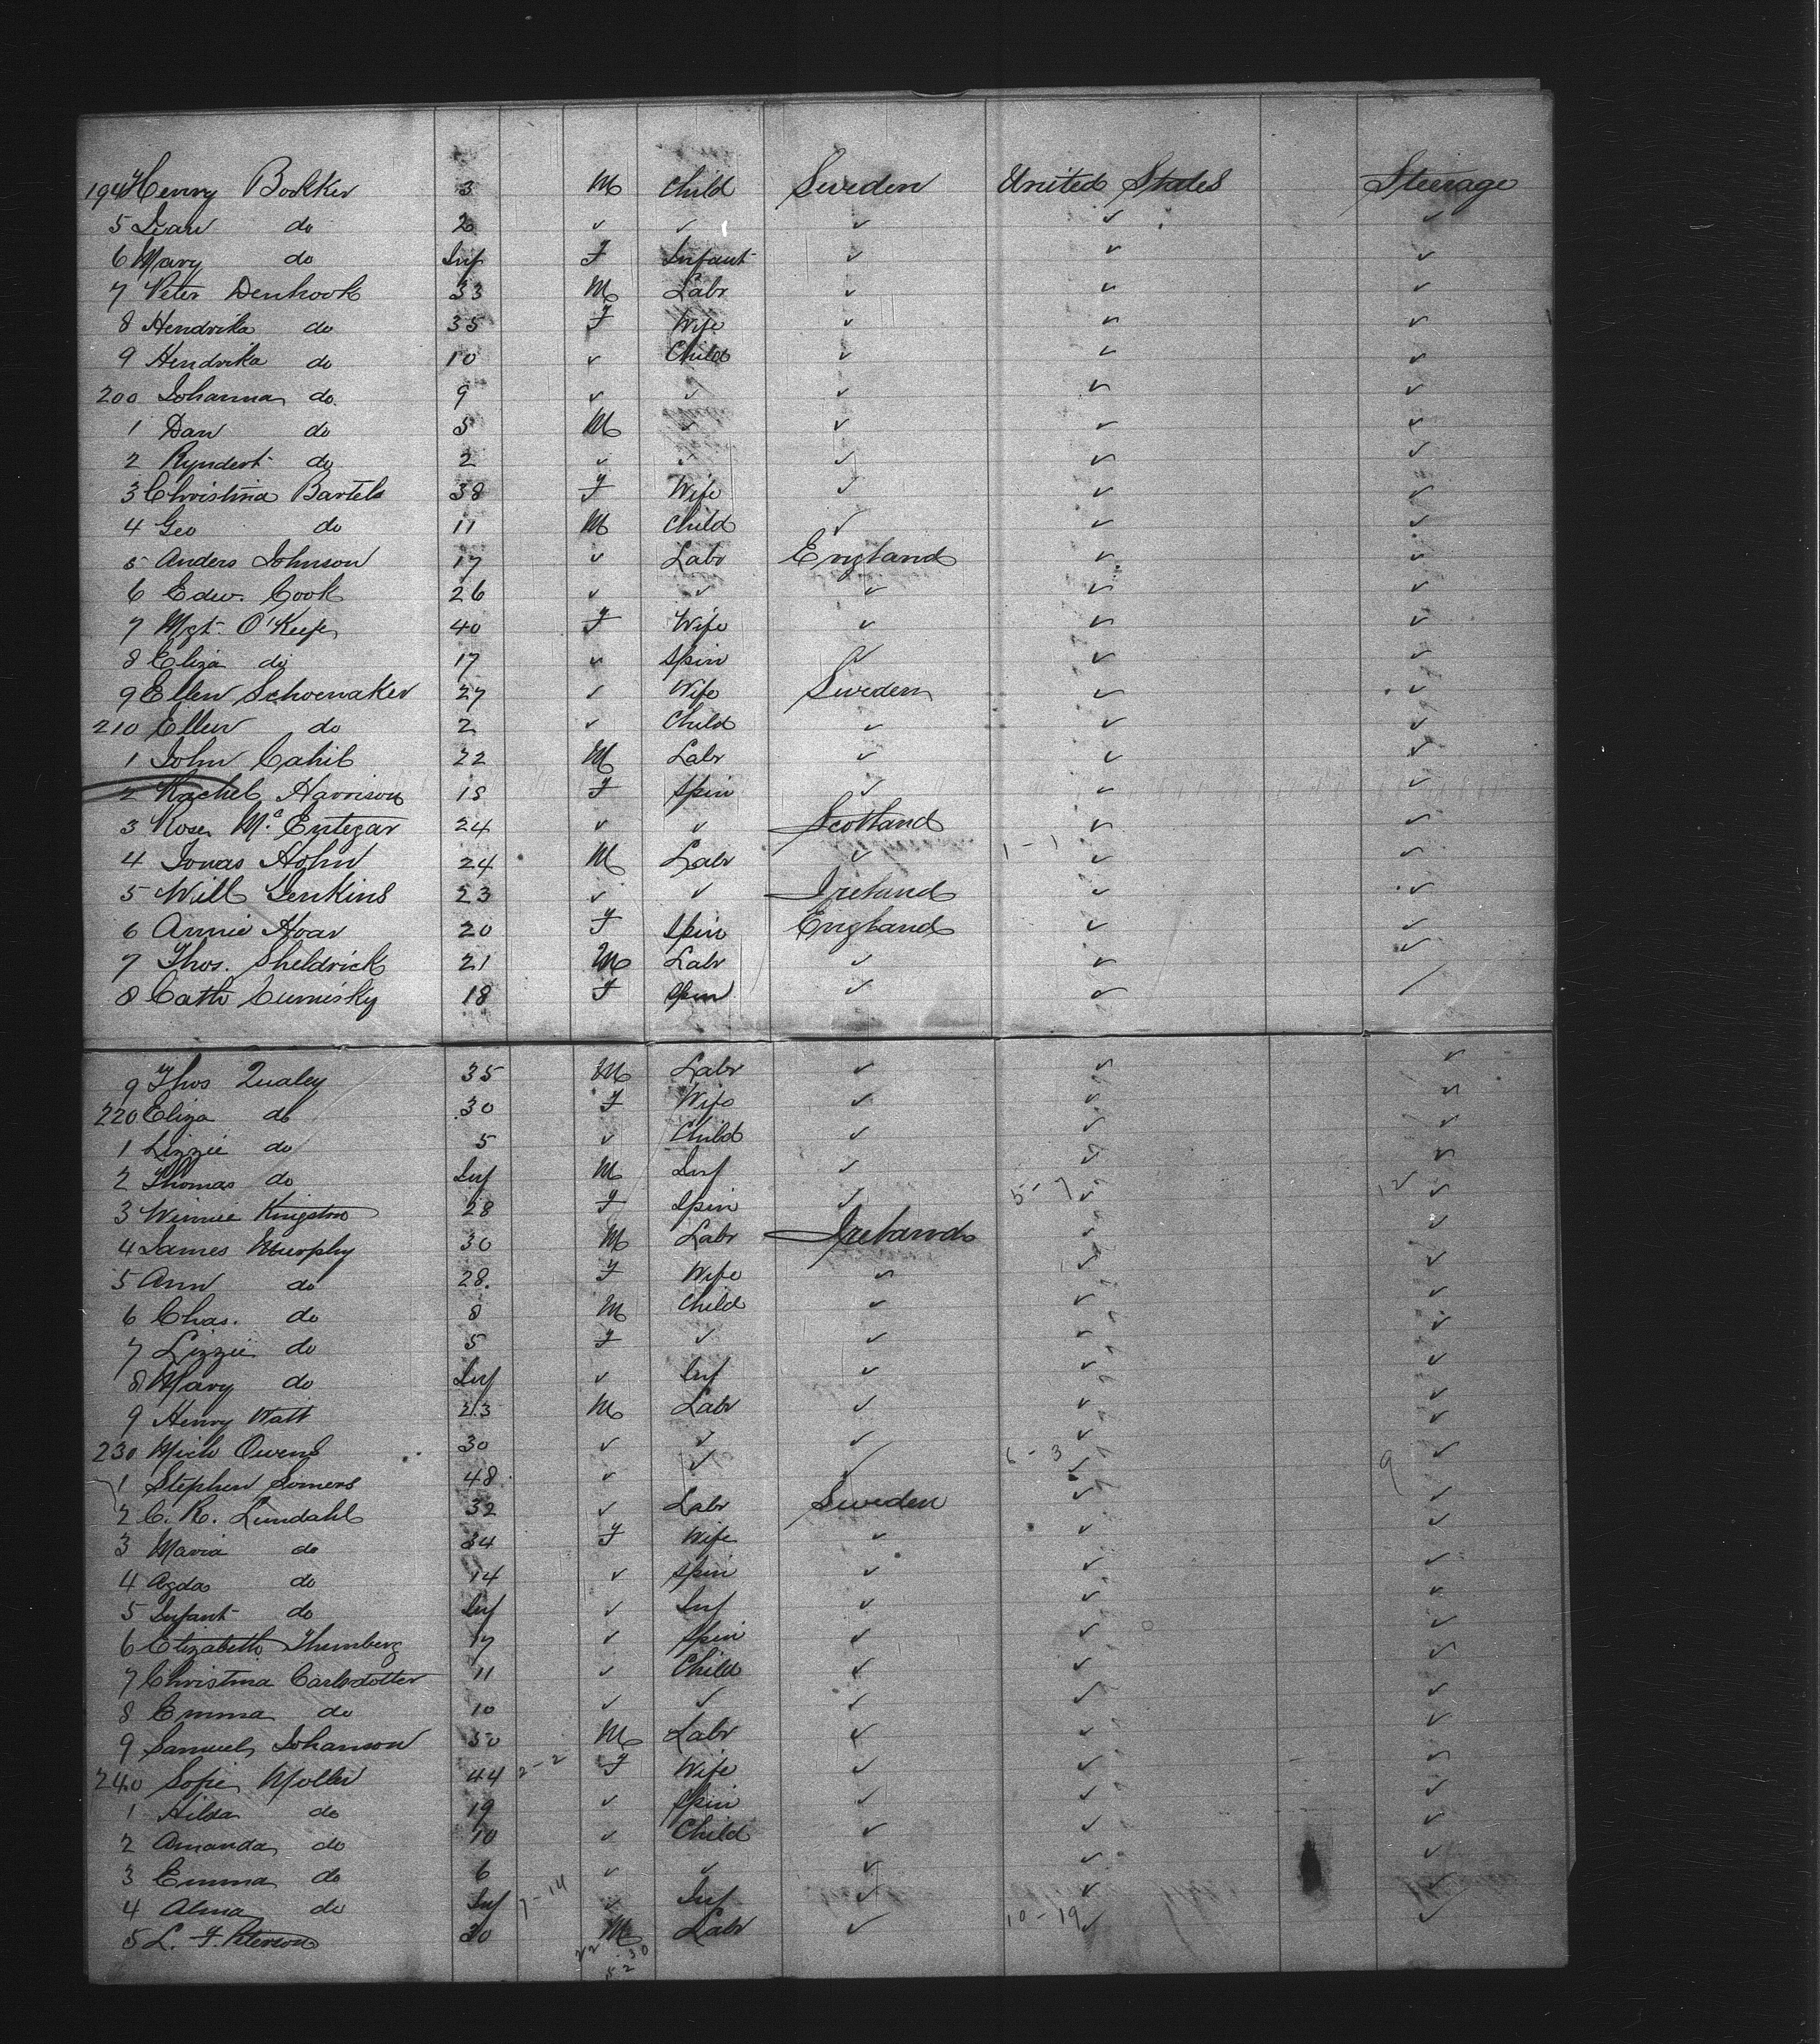 194 Henry Bokker 3 M Child Sweden United States Steerage
5 Ivan do 2 ✓ ✓ ✓ ✓ ✓
6 Mary do Inf F Infant ✓ ✓ ✓
7 Peter Denhook 33 M Labr ✓ ✓ ✓
8 Hendrika do 35 F Wife ✓ ✓ ✓
9 Hendrika do 10 ✓ Child ✓ ✓ ✓
200 Johanna do 9 ✓ ✓ ✓ ✓ ✓
1 Dan do 5 M ✓ ✓ ✓ ✓
2 Ryndert do 2 ✓ ✓ ✓ ✓ ✓
3 Christina Bartels 38 F Wife ✓ ✓ ✓
4 Geo do 11 M Child ✓ ✓ ✓
5 Anders Johnson 17 ✓ Labr England ✓ ✓
6 Edw. Cook 26 ✓ ✓ ✓ ✓ ✓
7 Mgt. O'Keefe 40 F Wife ✓ ✓ ✓
8 Eliza do 17 ✓ Spin ✓ ✓ ✓
9 Ellen Schoenaker 27 ✓ Wife Sweden ✓ ✓
210 Ellen do 2 ✓ Child ✓ ✓ ✓
1 John Cahil 22 M Labr ✓ ✓ ✓
2 Rachel Harrison 18 F Spin ✓ ✓ ✓
3 Rose McEntegar 24 ✓ ✓ Scotland ✓ ✓
4 Jonas Hohn 24 M Labr ✓ 1-1 ✓ ✓
5 Will Jenkins 23 ✓ ✓ Ireland ✓ ✓
6 Annie Hoar 20 F Spin England ✓ ✓
7 Thos. Sheldrick 21 M Labr ✓ ✓ ✓
8 Cath Cumisky 18 F Spin ✓ ✓ /
9 Thos Qualey 35 M Labr ✓ ✓ ✓
220 Eliza do 30 F Wife ✓ ✓ ✓
1 Lizzie do 5 ✓ Child ✓ ✓ ✓
2 Thomas do Inf M Inf ✓ ✓ ✓
3 Winnie Kingston 28 F Spin ✓ 5-7 ✓ 12 ✓
4 James Murphy 30 M Labr Ireland ✓ ✓
5 Ann do 28. F Wife ✓ ✓ ✓
6 Chas. do 8 M Child ✓ ✓ ✓
7 Lizzie do 5 F ✓ ✓ ✓ ✓
8 Mary do Inf ✓ Inf ✓ ✓ ✓
9 Henry Watt 23 M Labr ✓ ✓ ✓
230 Mich Owens 30 ✓ ✓ ✓ ✓ ✓
1 Stephen Somers 48 ✓ ✓ ✓ 6-3 ✓ 9 ✓
2 C. R. Lundahl 32 ✓ Labr Sweden ✓ ✓
3 Maria do 34 F Wife ✓ ✓ ✓
4 Agda do 14 ✓ Spin ✓ ✓ ✓
5 Infant do Inf ✓ Inf ✓ ✓ ✓
6 Elizabeth Thernberg 17 ✓ Spin ✓ ✓ ✓
7 Christina Carlsdotter 11 ✓ Child ✓ ✓ ✓
8 Emma do 10 ✓ ✓ ✓ ✓ ✓
9 Samuel Johanson 50 M Labr ✓ ✓ ✓
240 Sofie Moller 44 2-2 F Wife ✓ ✓ ✓
1 Hilda do 19 ✓ Spin ✓ ✓ ✓
2 Amanda do 10 ✓ Child ✓ ✓ ✓
3 Emma do 6 ✓ ✓ ✓ ✓ ✓
4 Alma do Inf 7-14 ✓ Inf ✓ ✓ ✓
5 L. F. Peterson 20 M Labr ✓ 10-19 ✓ ✓
22-30
52